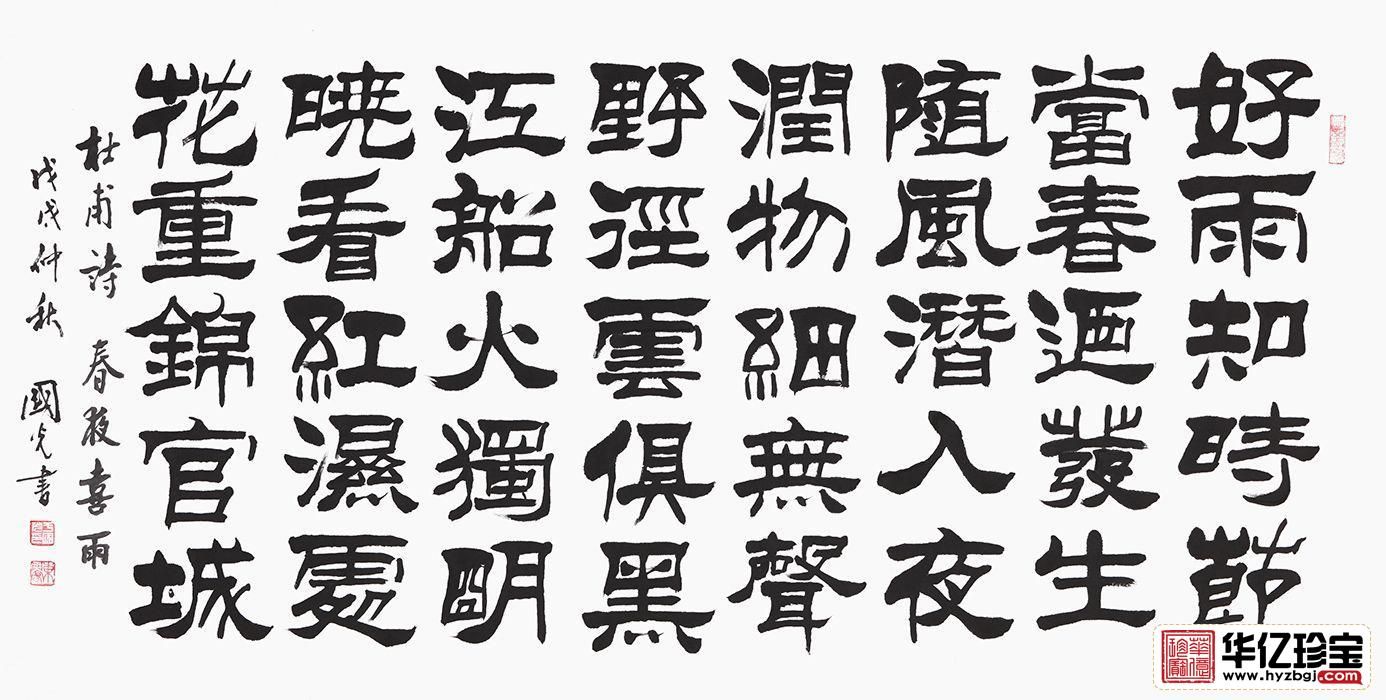 好雨知時節
當春迺發生
随風潛入夜
潤物細無聲
野徑雲俱黑
江船火獨明
曉看紅濕處
花重錦官城
杜甫詩 春夜喜雨
戊戌仲秋 國光書
华亿珍宝
www.hyzbgj.com